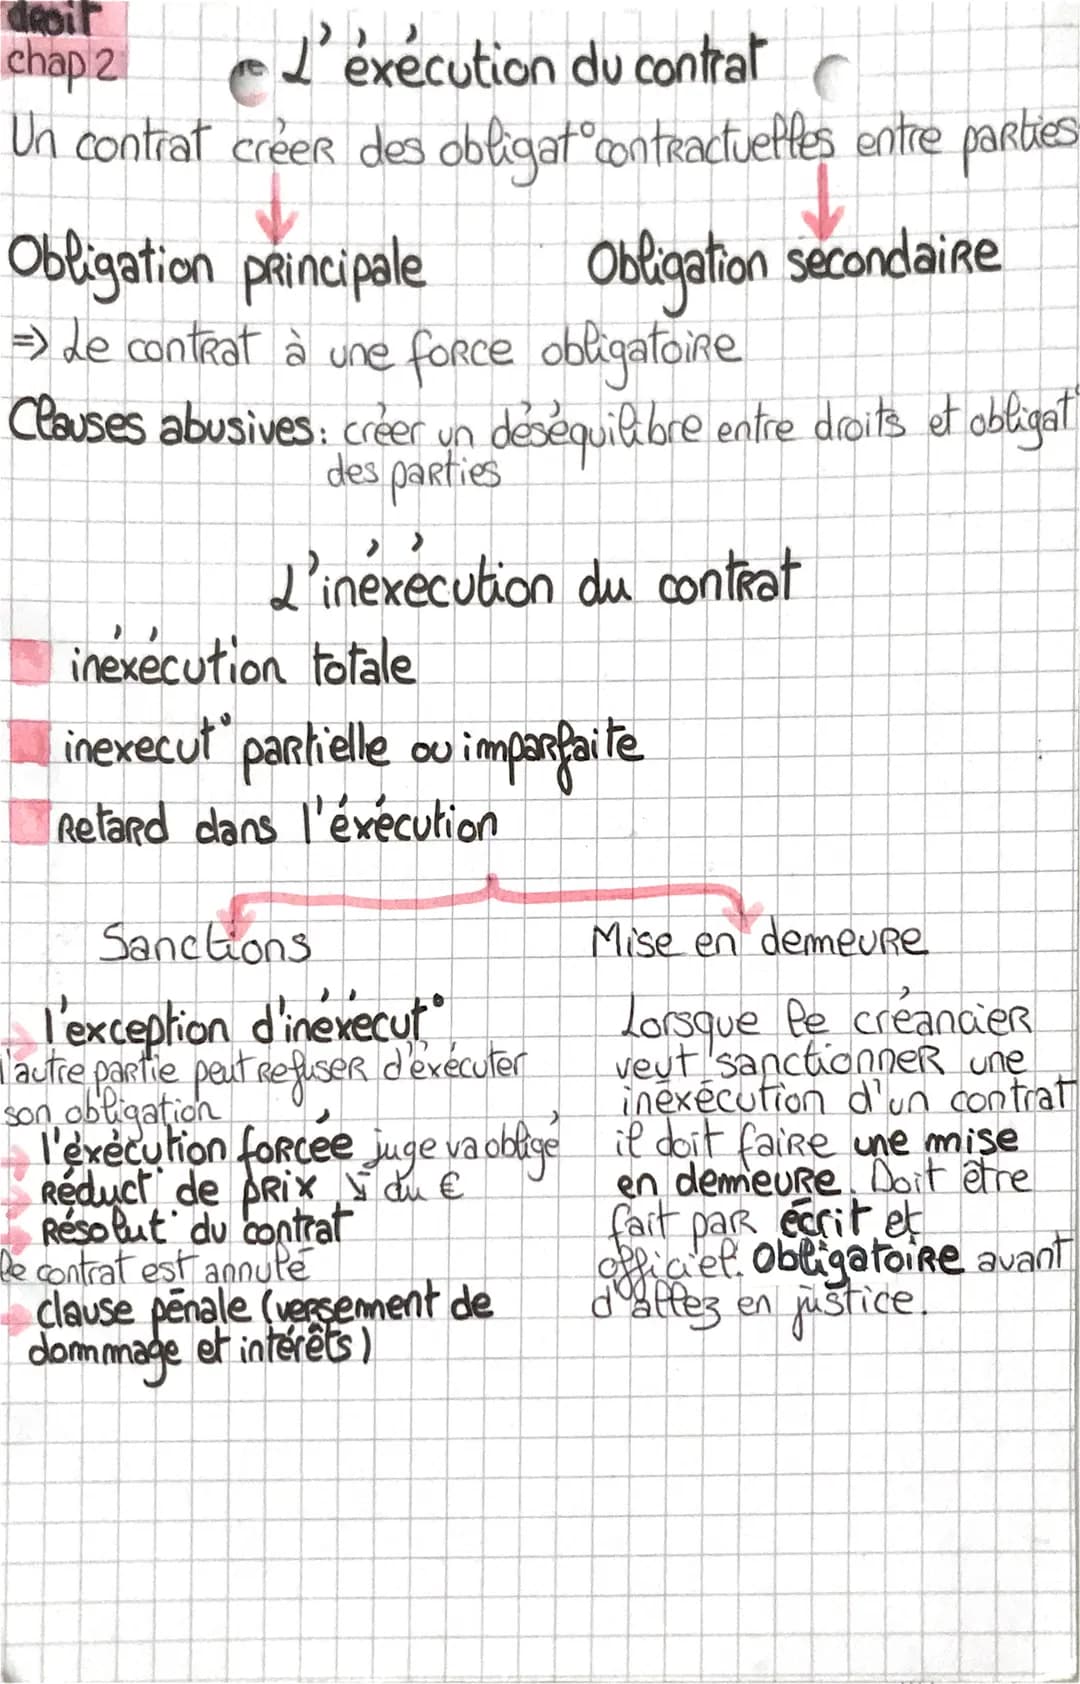 droit
chap 2
L'éxécution du contrat
Un contrat créer des obligat° contractuelles entre parties
Obligation principale
Obligation secondaire
=> Le contrat à une force obligatoire
Clauses abusives: créer un déséquilibre entre droits et obligat°
des parties
L'inéxécution du contrat
inéxécution totale
inexecut° partielle ou imparfaite
Retard dans l'éxécution
Sanctions
l'exception d'inéxécut°
l'autre partie peut refuser d'éxécuter
son obligation
l'éxécution forcée juge va obligé
Réduct° de prix ↘ du €
Résolut° du contrat
le contrat est annulé
clause pénale (versement de
dommage et intérêts)
Mise en demeure
Lorsque le créancier
veut sanctionner une
inéxécution d'un contrat
il doit faire une mise
en demeure. Doit être
fait par écrit et
officiel. Obligatoire avant
d'allez en justice.